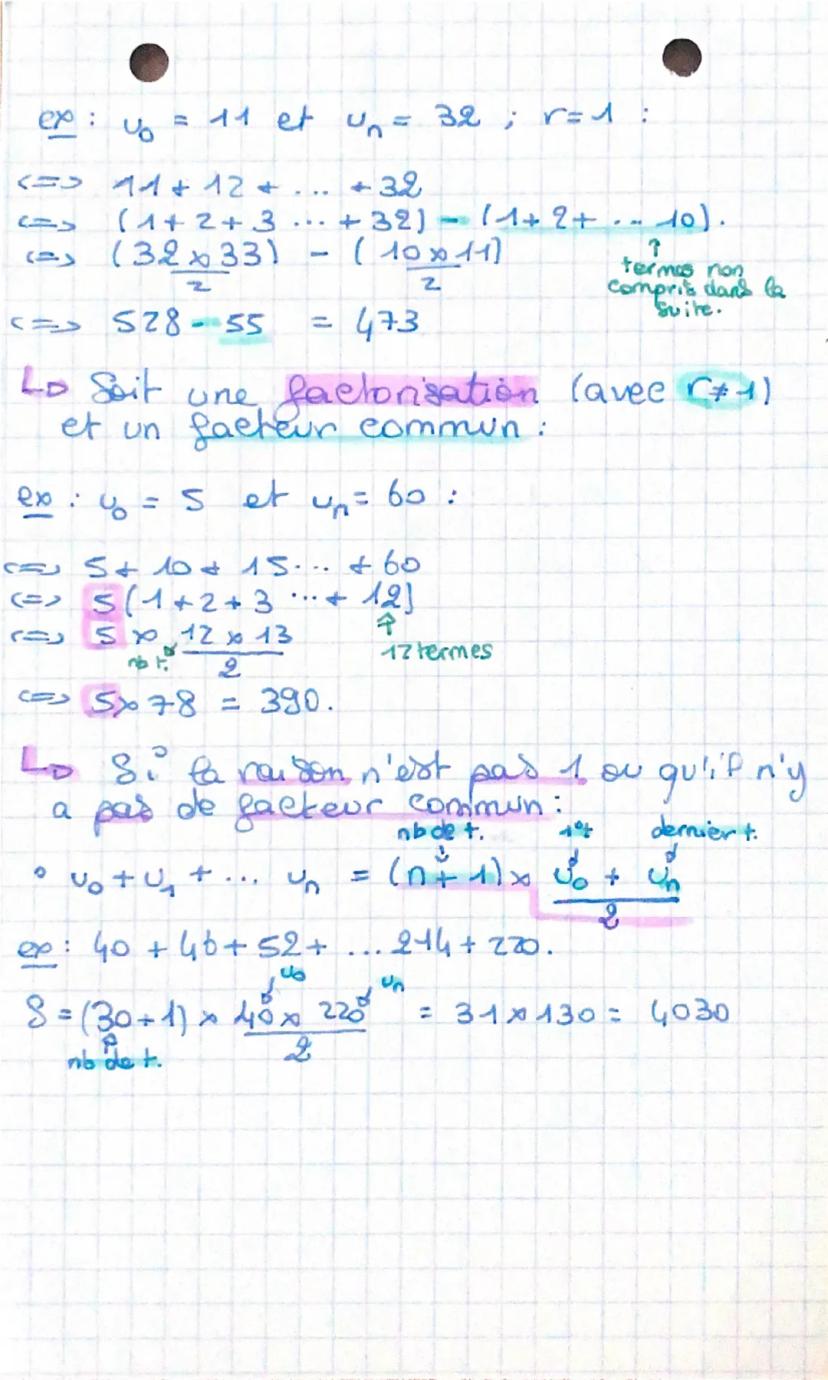 ex : u₀ = 11 et uₙ = 32 ; r=1 :
<=> 11 + 12 + ... + 32
<=> (1+2+3 ... + 32) - (1+2+ ... 10).
<=> (32×33)/2 - (10×11)/2
↑ termes non
compris dans la
suite.
<=> 528 - 55 = 473
↳ Soit une factorisation (avec r≠1)
et un facteur commun :
ex : u₀ = 5 et uₙ = 60 :
<=> 5+ 10 + 15... + 60
<=> 5(1+2+3 ...+ 12)
<=> 5 × (12 × 13)/2
nb t. ↑ 12 termes
<=> 5×78 = 390.
↳ Si la raison n'est pas 1 ou qu'il n'y
a pas de facteur commun :
nb de t. 1er dernier t.
• u₀ + u₁ + ... uₙ = (n+1) × (u₀ + uₙ)/2
ex : 40 + 46 + 52 + ... 214 + 220.
u₀ uₙ
S = (30+1) × (40 × 220)/2 = 31×130 = 4030
nb de t.